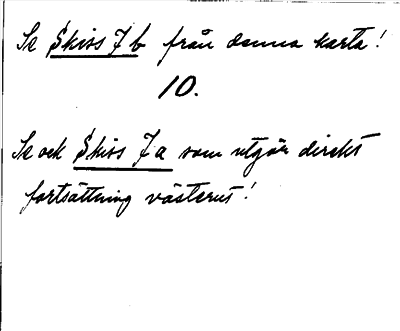 Se Skiss 7 b från denna karta!
10.
Se ock Skiss 7 a som utgör direkt
fortsättning västerut!